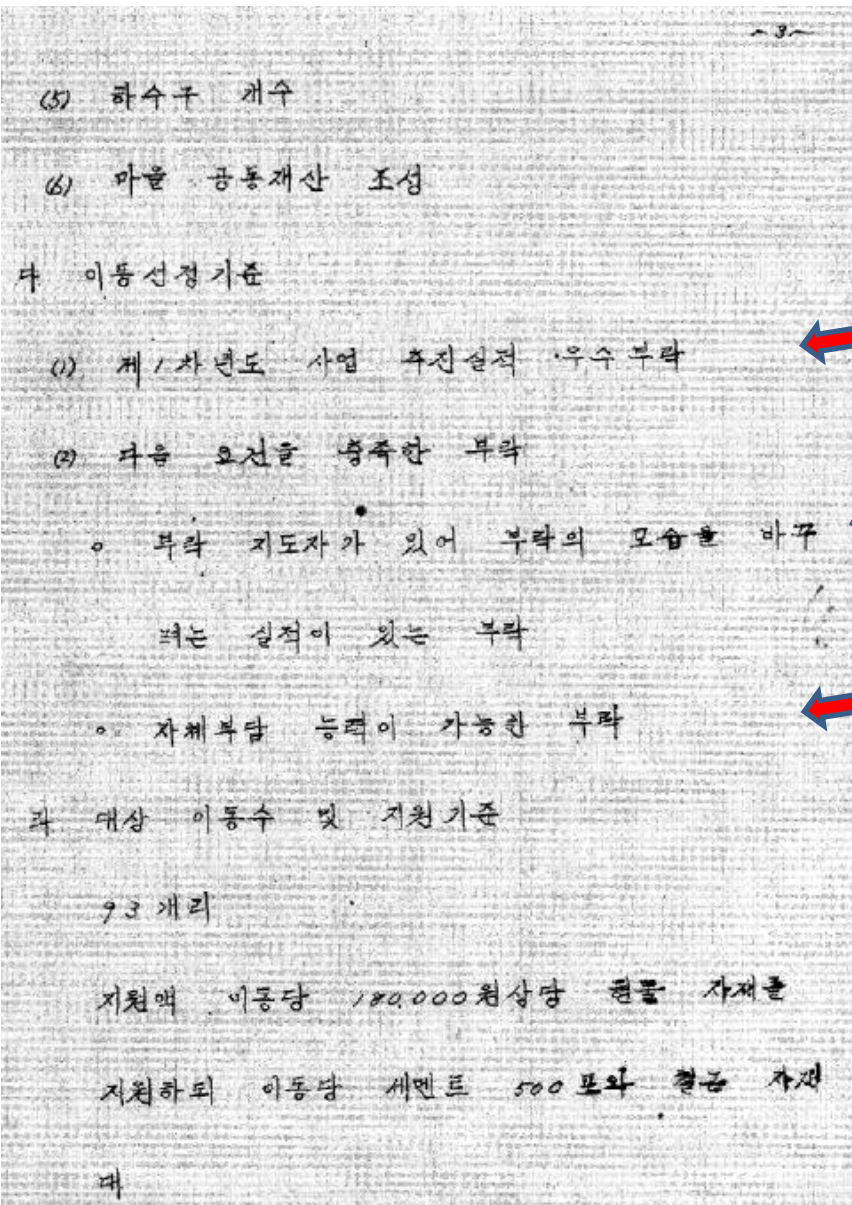 ~3~
(5) 하수구 개수
(6) 마을 공동재산 조성
다 이동선정기준
(1) 제1차년도 사업 추진실적 우수부락
(2) 다음 요건을 충족한 부락
o 부락 지도자가 있어 부락의 모습을 바꾸
려는 실적이 있는 부락
o 자체부담 능력이 가능한 부락
라 대상 이동수 및 지원기준
93개리
지원액 이동당 180,000원상당 현물 자재를
지원하되 이동당 세멘트 500포와 철근 자재
대